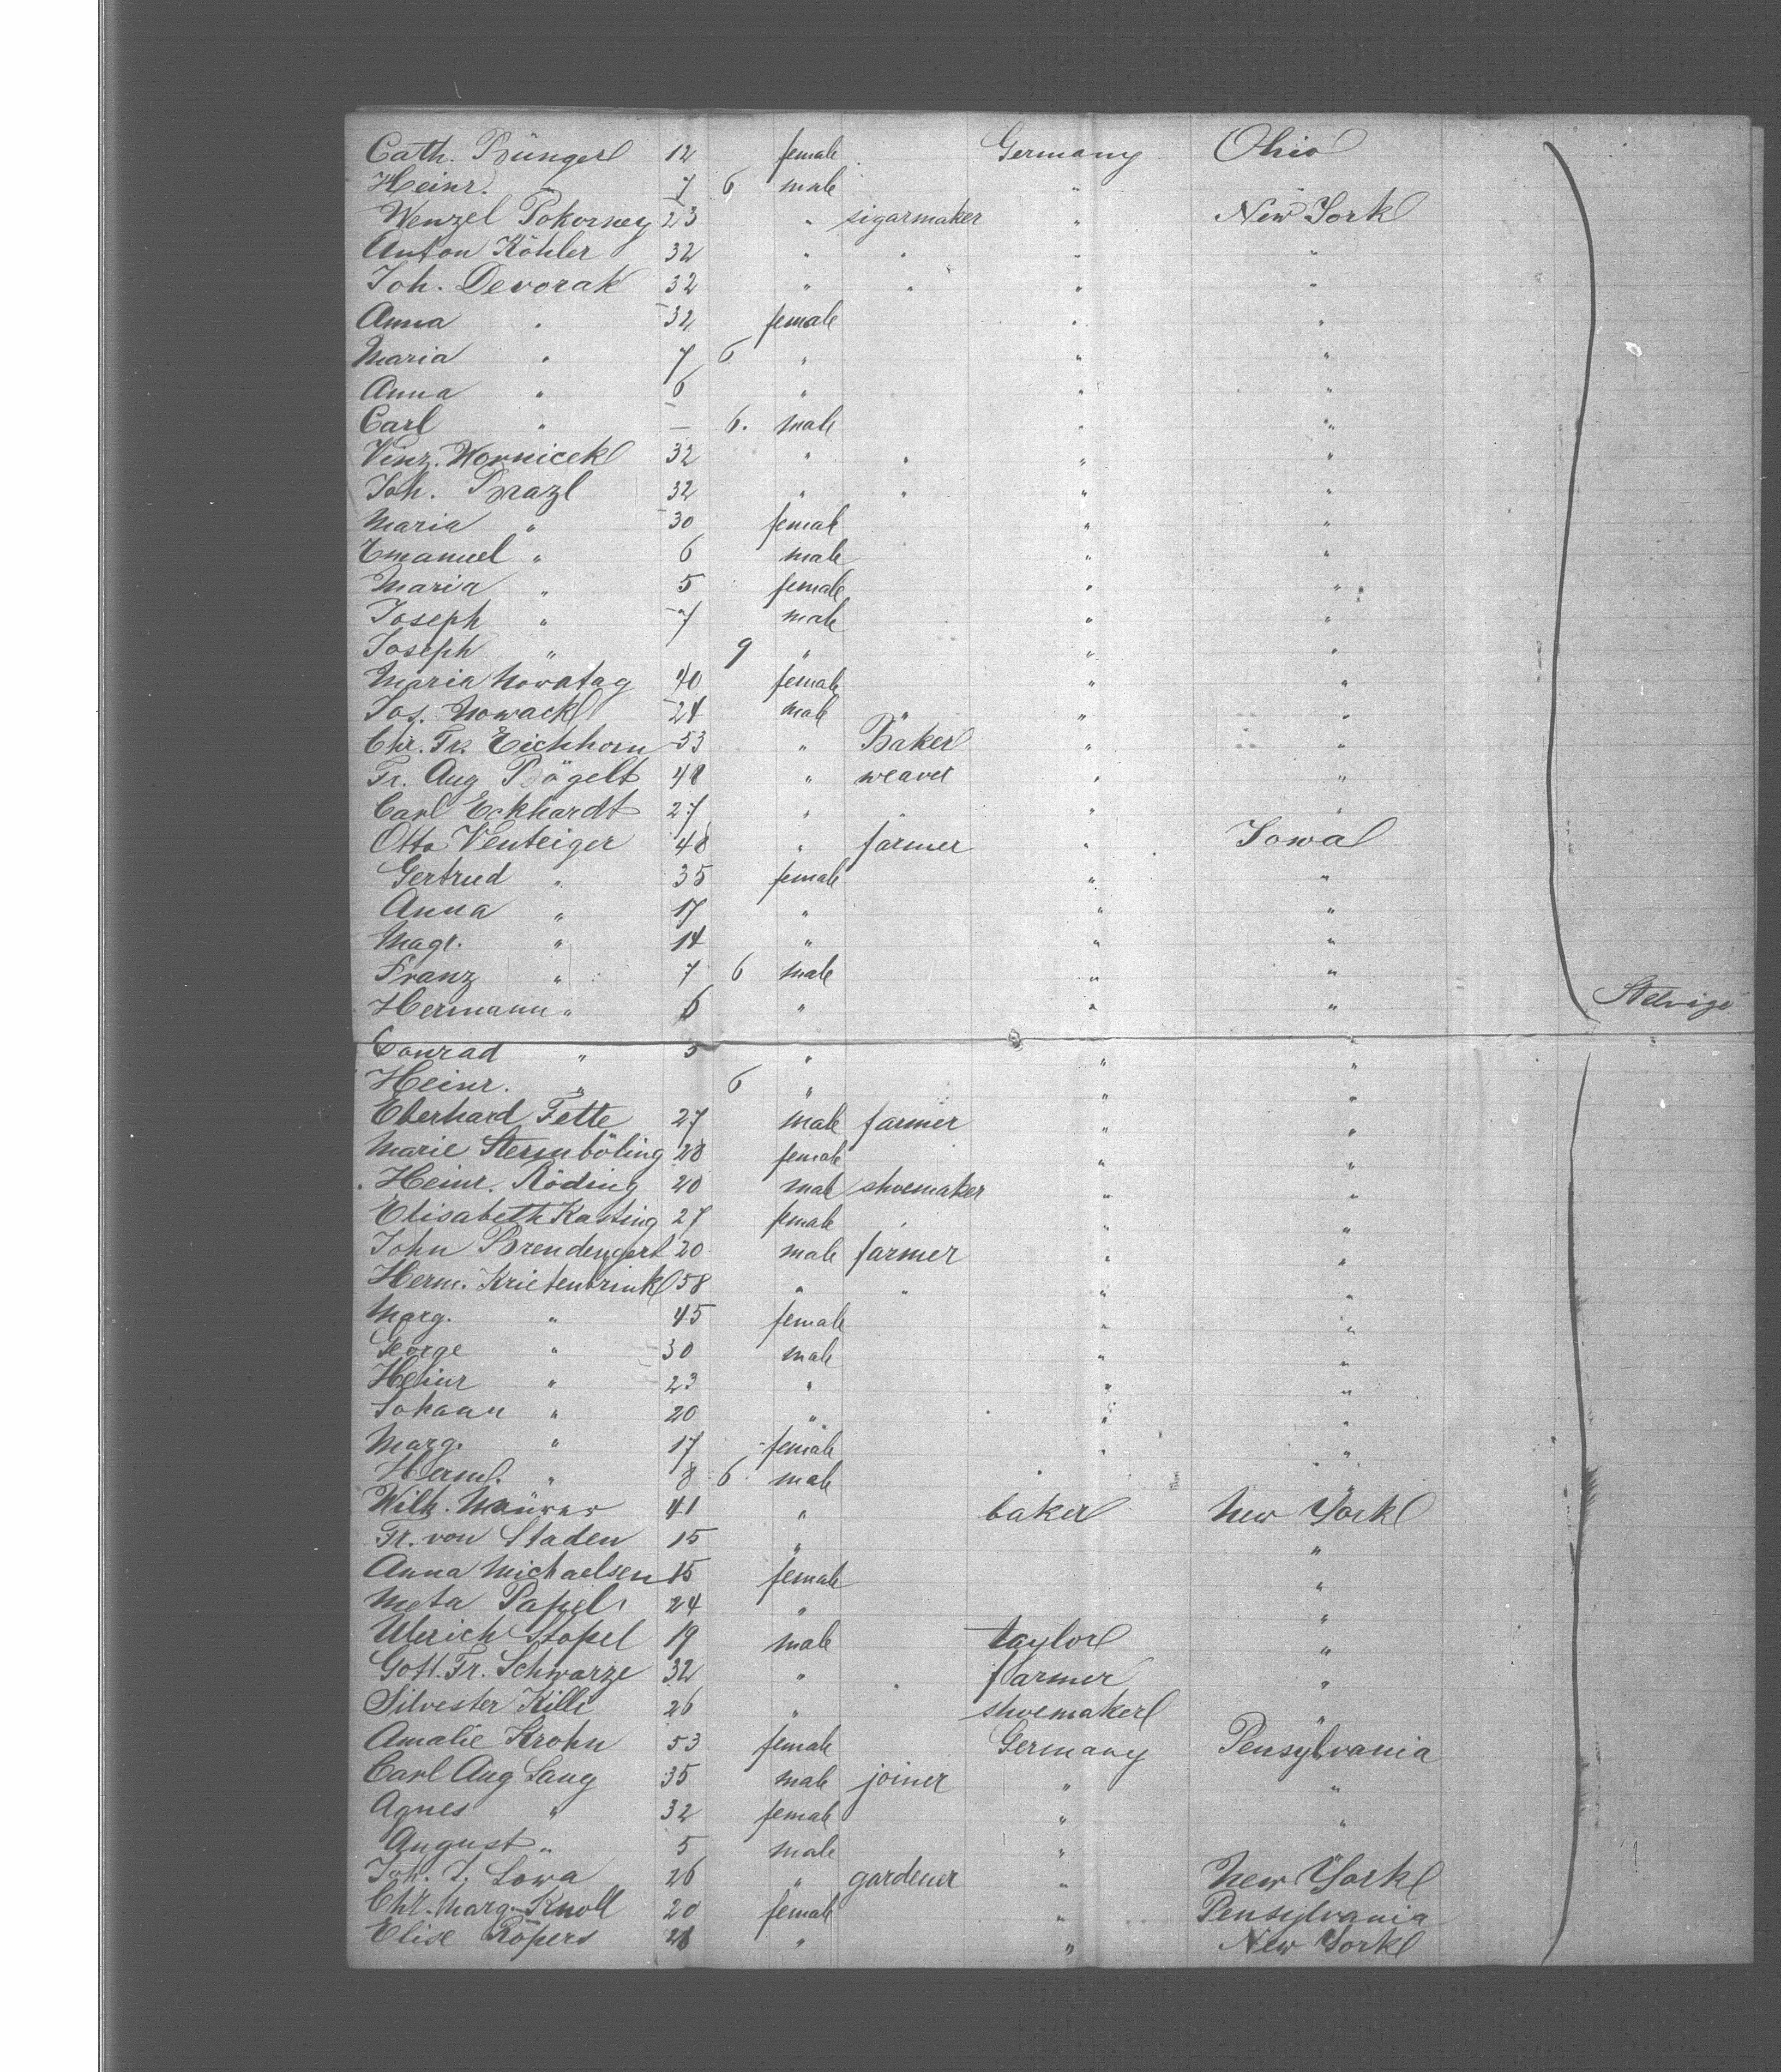 Cath. Büngel 12 female Germany Ohio
Heinr. " 7 6 male "
Wenzel Pokorney 23 " sigarmaker " New York
Anton Köhler 32 " " " "
Joh. Devorak 32 " " " "
Anna " 32 female " "
Maria " 7 6 " " "
Anna " 6 " " "
Carl " – 6. male " "
Vinz. Wornicek 32 " " " "
Joh. Brazl 32 " " " "
Maria " 30 female " "
Emanuel " 6 male " "
Maria " 5 female " "
Joseph " 7 male " "
Joseph " 9 " " "
Maria Nowatag 40 female " "
Jos. Nowack 24 male " " "
Chr. Fr. Eichhorn 53 " Baker " "
Fr. Aug Bögelt 48 " weaver " "
Carl Eckhardt 27 " " "
Otto Venteiger 48 " farmer " Iowa
Gertrud " 35 female " "
Anna " 17 " " "
Magr. " 14 " " "
Franz " 7 6 male " "
Hermann " 6 " " "
Conrad " 5 " " "
Heinr. " 6 " " "
Eberhard Fette 27 male farmer " "
Marie Sternböling 28 female " "
Heinr. Röding 20 male shoemaker " "
Elisabeth Kasting 27 female " "
John Brendengert 20 male farmer " "
Herm. Krietenbrink 58 " " " "
Marg. " 45 female " "
George " 30 male " "
Heinr " 23 " " "
Johann " 20 " " "
Marg. " 17 female " "
Herm. " 8 6 male " "
Wilh. Maürer 41 " baker New York
Fr. von Staden 15 " "
Anna Michaelsen 15 female "
Meta Papel 24 " "
Ulerich Stopel 19 male taylor "
Gott. Fr. Schwarze 32 " farmer "
Silvester Kille 26 " shoemaker "
Amalie Krohn 53 female Germany Pensylvania
Carl Aug Lang 35 male joiner " "
Agnes " 32 female " "
August " 5 male "
Joh. J. Lowa 26 " gardener " New York
Chr. Marg. Knoll 20 female " Pensylvania
Elise Röpers 28 " " New York